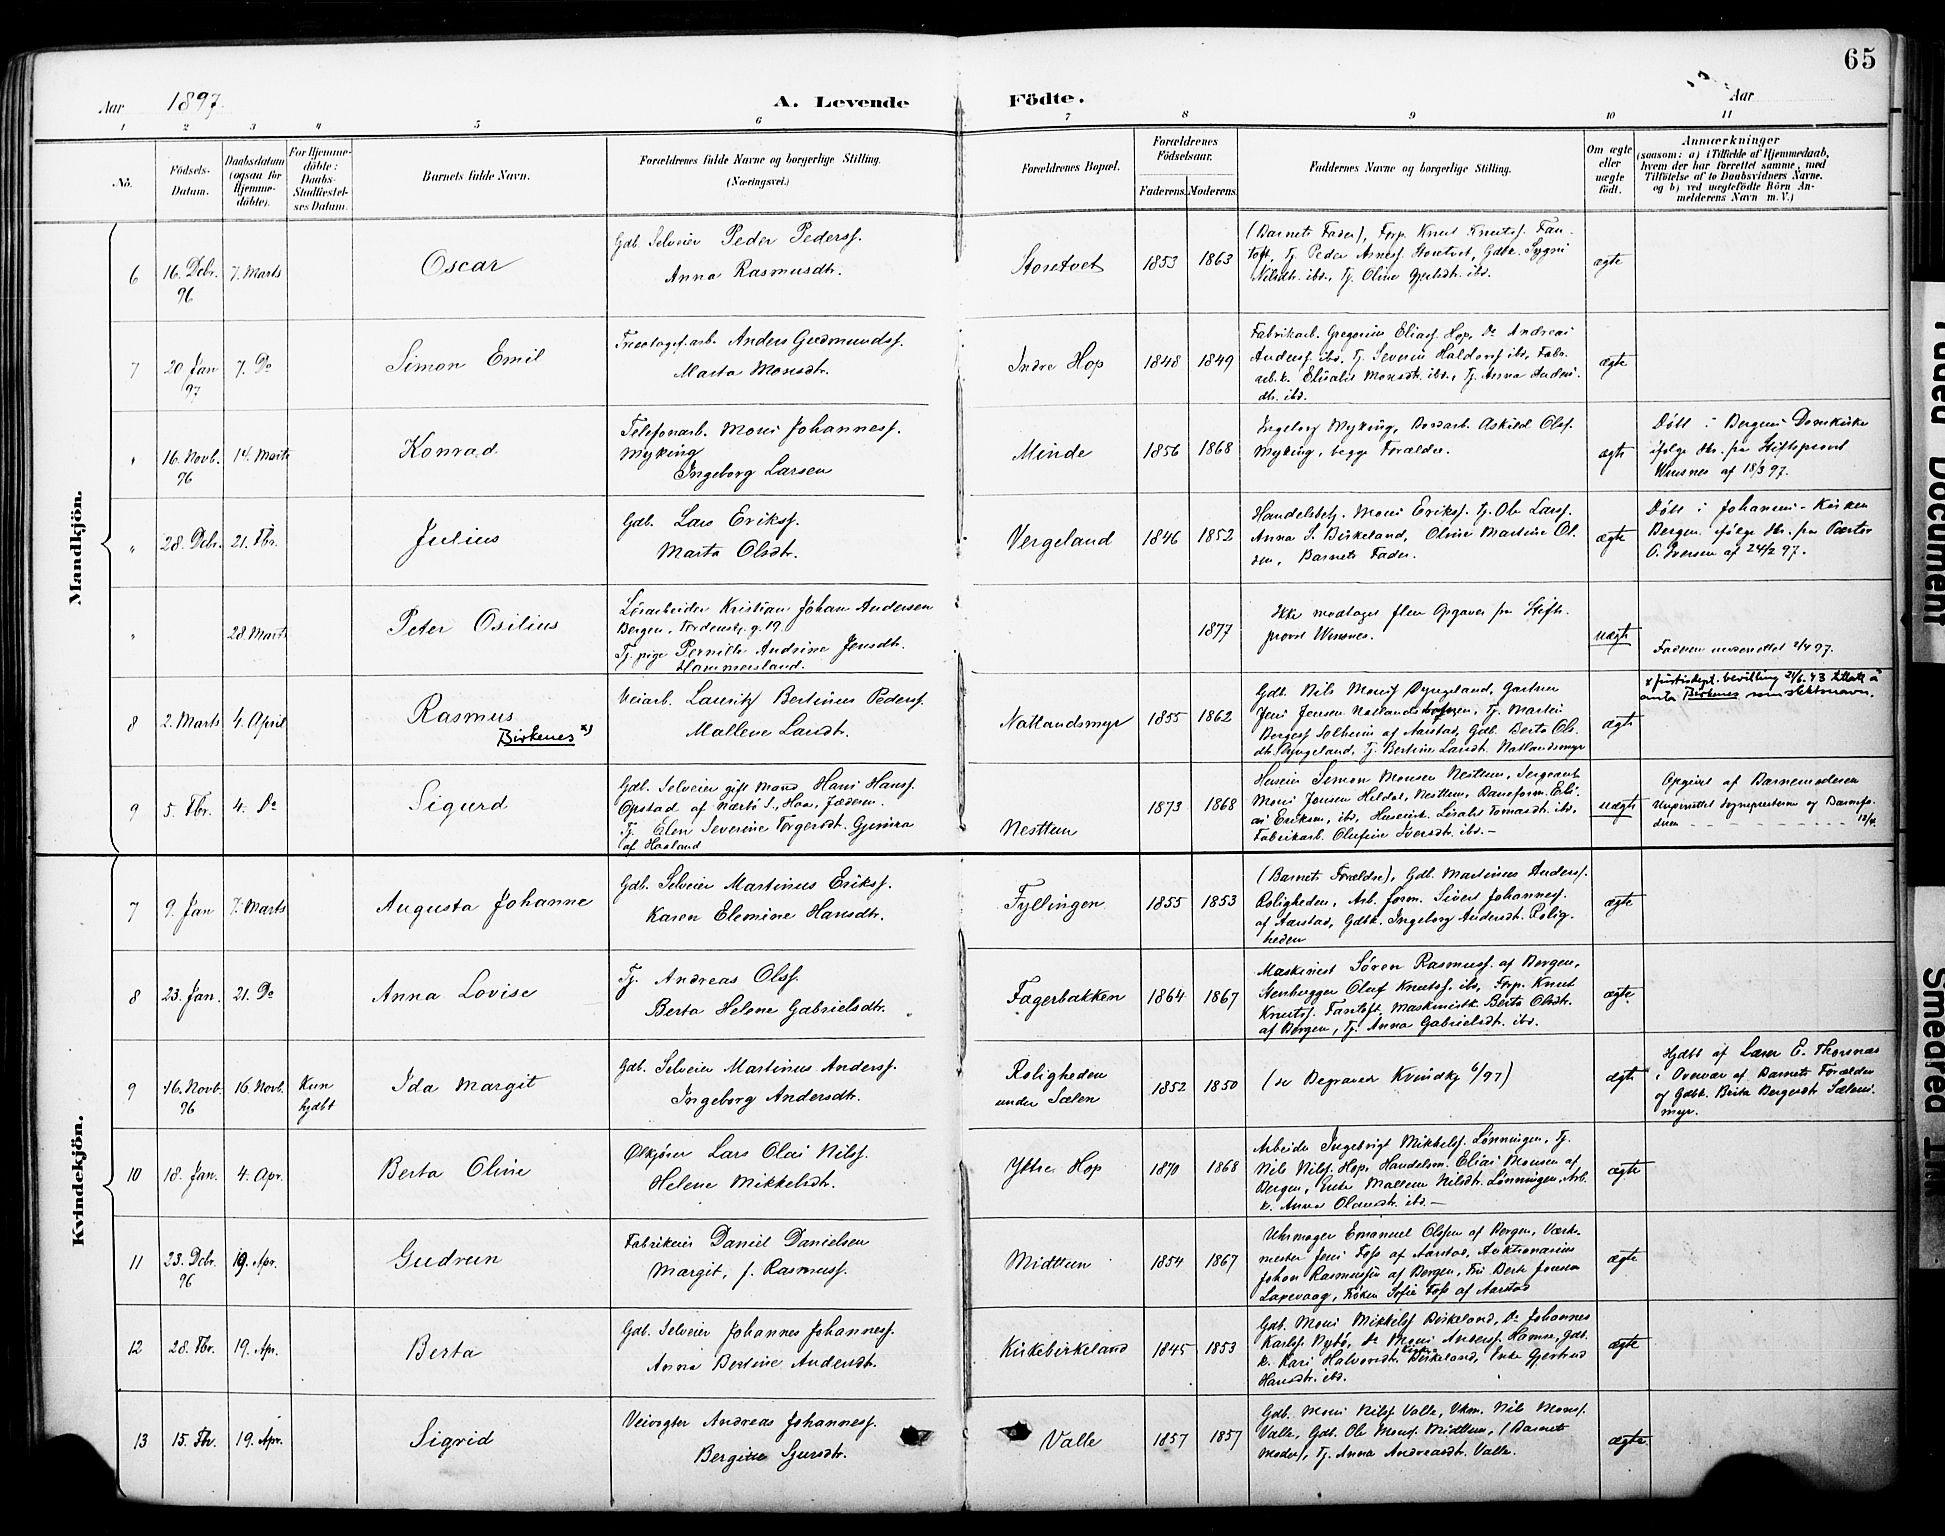 65
Aar 1897. A. Levende Födte. Aar
1 2 3 4 5 6 7 8 9 10 11
No.
Födsels-Datum.
Daabsdatum (ogsaa for Hjemmedöbte).
For Hjemmedöbte: Daabs-Stadfæstelses Datum.
Barnets fulde Navn.
Forældrenes fulde Navne og borgerlige Stilling.
(Næringsvei.)
Forældrenes Bopæl.
Forældrenes Födselsaar.
Faderens. Moderens.
Faddernes Navne og borgerlige Stilling.
Om ægte eller uægte födt.
Anmærkninger
(saasom: a) i Tilfælde af Hjemmedaab, hvem der har forrettet samme, med Tilföielse af to Daabsvidners Navne. og b) ved uægtefödte Börn Anmelderens Navn m. V.)
Mandkjön.
6 16. Decbr. 96 7. Marts
Oscar
Gdb. Selveier Peder Pedersf.
Anna Rasmusdtr.
Storetvet 1853 1863
(Barnets Fader), Forp. Knut Knutsf. Fan-
toft, Tj. Peder Arnesf. Storetvet, Gdbk. Sygni
Nilsdtr. ibd., Tj. Oline Gjertsdtr. ibd.
ægte
7 20 Jan 97 7. Do
Simon Emil
Anders Gudmundsf.
Marta Monsdtr.
Indre Hop 1848 1849
Fabrikarb. Gregorius Eliasf. Hop, Do Andreas
Andersf. ibd. Tj. Severin Haldorsf ibd, Fabr.
arb. k. Elisabet Monsdtr. ibd., Tj. Anna Anders-
dtr. ibd.
ægte
" 16. Novb. 96 14. Marts
Konrad
Telefonarb. Mons Johannesf.
Myking
Ingeborg Larsen
Minde 1856 1868
Ingeborg Myking, Bordarb. Askild Olsf.
Myking, begge Forældre.
ægte
Døbt i Bergens Domkirke
ifølge Atr. fra Stiftsprovst
Wensnes af 18/3 97.
" 28. Decbr. 21. Fbr.
Julius
Gdb. Lars Eriksf.
Marta Olsdtr.
Vergeland 1846 1852
Handelsbetj. Mons Eriksf. Tj. Ole Larsf.
Anna S. Birkeland, Oline Martine Ol-
sen, Barnets Fader.
ægte
Døbt i Johannes-Kirken
Bergen ifølge Atr. fra Pastor
O. Iversen af 24/2 97.
" 28. Marts
Peter Osilius
Løsarbeider Kristian Johan Andersen
Bergen, g. 19
Tj. pige Pernille Andrine Jensdtr.
Hammersland.
1877
Ikke modtaget flere Opgaver fra Stifts-
provst Wensnes.
uægte
Faderen underrettet 2/4 97.
8 2. Marts 4. April
Rasmus
Birkenes x)
Veiarb. Lauritz Bertinus Pedersf.
Mallene Larsdtr.
Natlandsmyr 1855 1862
Gdb. Nils Monsf Dyngeland, Gartner
Jens Jensen Natlandshaugen, Tj. Martin
Bergesf Solheim af Aarstad, Gdb. Berta Ols-
dtr. Dyngeland, Tj. Bertine Larsdtr. Natlandsmyr
ægte
x Justisdept. bevilling 21/6. 43 tillatt å
anta Birkenes som slektsnavn.
9 5. Fbr. 4. Do
Sigurd
Gdb. Selveier gift Mand Hans Hansf.
Opstad af Nærbø S., Haa, Jæderen.
Tj. Elen Severine Torgersdtr. Gjemra
af Haaland
Nesttun 1873 1868
Huseier Simon Monsen Nesttun, Sergeant
Mons Jonsen Heldal, Nesttun, Baneform. Eli-
as Eriksen, ibd, Huseierk. Lisabet Tomasdtr. ibd,
Fabrikarb. Olufine Iversdtr. ibd. —
uægte
Opgivet af Barnemoderen
Underrettet Sognepresten og Barnefa-
deren 12/4.
Kvindekjön.
7 9. Jan 7. Marts
Augusta Johanne
Gdb. Selveier Martinus Eriksf.
Karen Elemine Hansdtr.
Fyllingen 1855 1853
(Barnets Forældre), Gdb. Martinus Andersf.
Roligheden, Arb. form. Sivert Johannesf.
af Aarstad, Gdbk. Ingeborg Andersdtr. Rolig-
heden
ægte
8 23. Jan. 21. Do
Anna Lovise
Tj. Andreas Olsf.
Berta Helene Gabrielsdtr.
Fagerbakken 1864 1867
Maskinist Søren Rasmusf. af Bergen,
Stenhugger Oluf Knutsf. ibd, Forp. Knut
Knutsf. Fantoft, Maskinistk. Berta Olsdtr.
af Bergen, Tj. Anna Gabrielsdtr. ibd.
ægte
9 16. Novb. 96 16 Novb. Kun hjdbt
Ida Margit
Gdb. Selveier Martinus Andersf.
Ingeborg Andersdtr.
Roligheden
under Sælen 1852 1850
(se Begravede Kvindkj 6/97)
ægte
Hjdbt af Lærer E. Thorsnæs
i Overvær af Barnets Forældre
og Gdbk. Brita Bergesdtr Sælens-
myr.
10 18. Jan. 4. Apr.
Berta Oline
Ølkjører Lars Olai Nilsf.
Helene Mikkelsdtr.
Yttre Hop 1870 1868
Arbeider Ingebrigt Mikkelsf. Lønningen, Tj.
Nils Nilsf. Hop, Handelsm. Elias Monsen af
Bergen, Enke Mallene Nilsdtr. Lønningen, Arb.
k. Anna Olavsdtr. ibd. —
ægte
11 23. Decbr. 96 19. Apr.
Gudrun
Fabrikeier Daniel Danielsen
Margit, f. Rasmusf.
Midttun 1854 1867
Uhrmager Emanuel Olssen af Bergen, Værk-
mester Jens Foss af Aarstad, Auktionarius
Johan Rasmussen af Bergen, Fru Berte Jonsen
Laxevaag, Frøken Sofie Foss af Aarstad
ægte
12 28. Fbr. 19. Apr.
Berta
Gdb. Selveier Johannes Johannesf.
Anna Bertine Andersdtr.
Kirkebirkeland 1845 1853
Gdb. Mons Mikkelsf Birkeland, Do Johannes
Karlsf. Nybø, Do Mons Andersf. Hamre, Gdb.
k. Kari Halvorsdtr. Kirke Birkeland, Enke Gjertrud
Hansdtr. ibd.
ægte
13 15. Fbr. 19. Apr.
Sigrid
Veivogter Andreas Johannesf.
Bergitte Sjursdtr.
Valle 1857 1857
Gdb. Mons Nilsf Valle, Ukm. Nils Monsf.
Valle, Gdb. Ole Monsf. Midttun, (Barnets
Moder), Tj. Anna Andreasdtr. Valle.
ægte
Faded Document
Smeared Ink